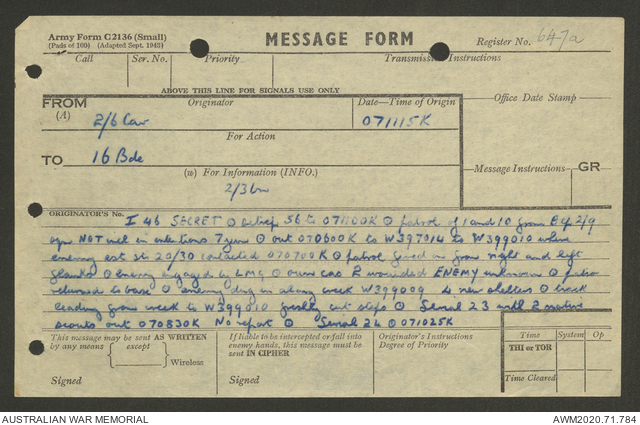 Army Form C2136 (Small)
(Pads of 100) (Adapted Sept. 1945)
MESSAGE FORM
Register No. 647a
Call Ser. No. Priority Transmission Instructions
ABOVE THIS LINE FOR SIGNALS USE ONLY
FROM Originator Date—Time of Origin Office Date Stamp
(A) 2/6 Cav 071115K
For Action
TO 16 Bde
Message Instructions GR
(w) For Information (INFO.)
2/3 Bn
ORIGINATOR'S No. I 46 SECRET 56 to 071100K patrol of 1 and 10 from 2/9
NOT in intentions 7 out 070600K to W397014 to W399010 where
enemy est st 20/30 contacted 070700K patrol fired on from right and left
flanks enemy engaged by LMG own cas 2 wounded ENEMY unknown
returned to base enemy dug in along W399009 4 new shelters track
leading from to W399010 freshly cut steps Serial 23 2 native
scouts out 070830K No report Serial 24 071025K
This message may be sent AS WRITTEN
by any means { except } Wireless
Signed
If liable to be intercepted or fall into
enemy hands, this message must be
sent IN CIPHER
Signed
Originator's Instructions
Degree of Priority
Time System Op
THI or TOR
Time Cleared
AUSTRALIAN WAR MEMORIAL AWM2020.71.784